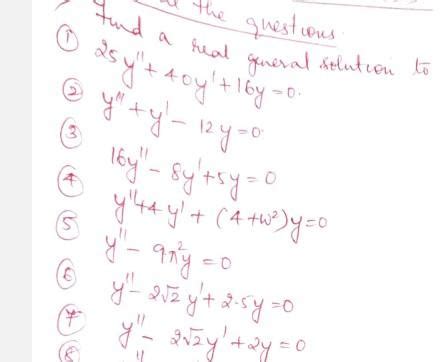 the questions.
Find a real general solution to
① 25y'' + 40y' + 16y = 0.
② y'' + y' - 12y = 0.
③ 16y'' - 8y' + 5y = 0
④ y'' + 4y' + (4+ω²)y = 0
⑤ y'' - 9π²y = 0
⑥ y'' - 2√2 y' + 2.5y = 0
⑦ y'' - 2√2 y' + 2y = 0
⑧